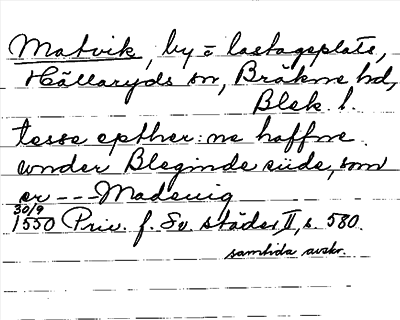 Matvik, by = lastageplats,
Hällaryds sn, Bräkne hd,
Blek. l.
tesse epther:ne haffne
under Bleginde siide, som
er --- Madeuig
30/9
1550 Priv. f. Sv. städer II, s. 580.
samtida avskr.